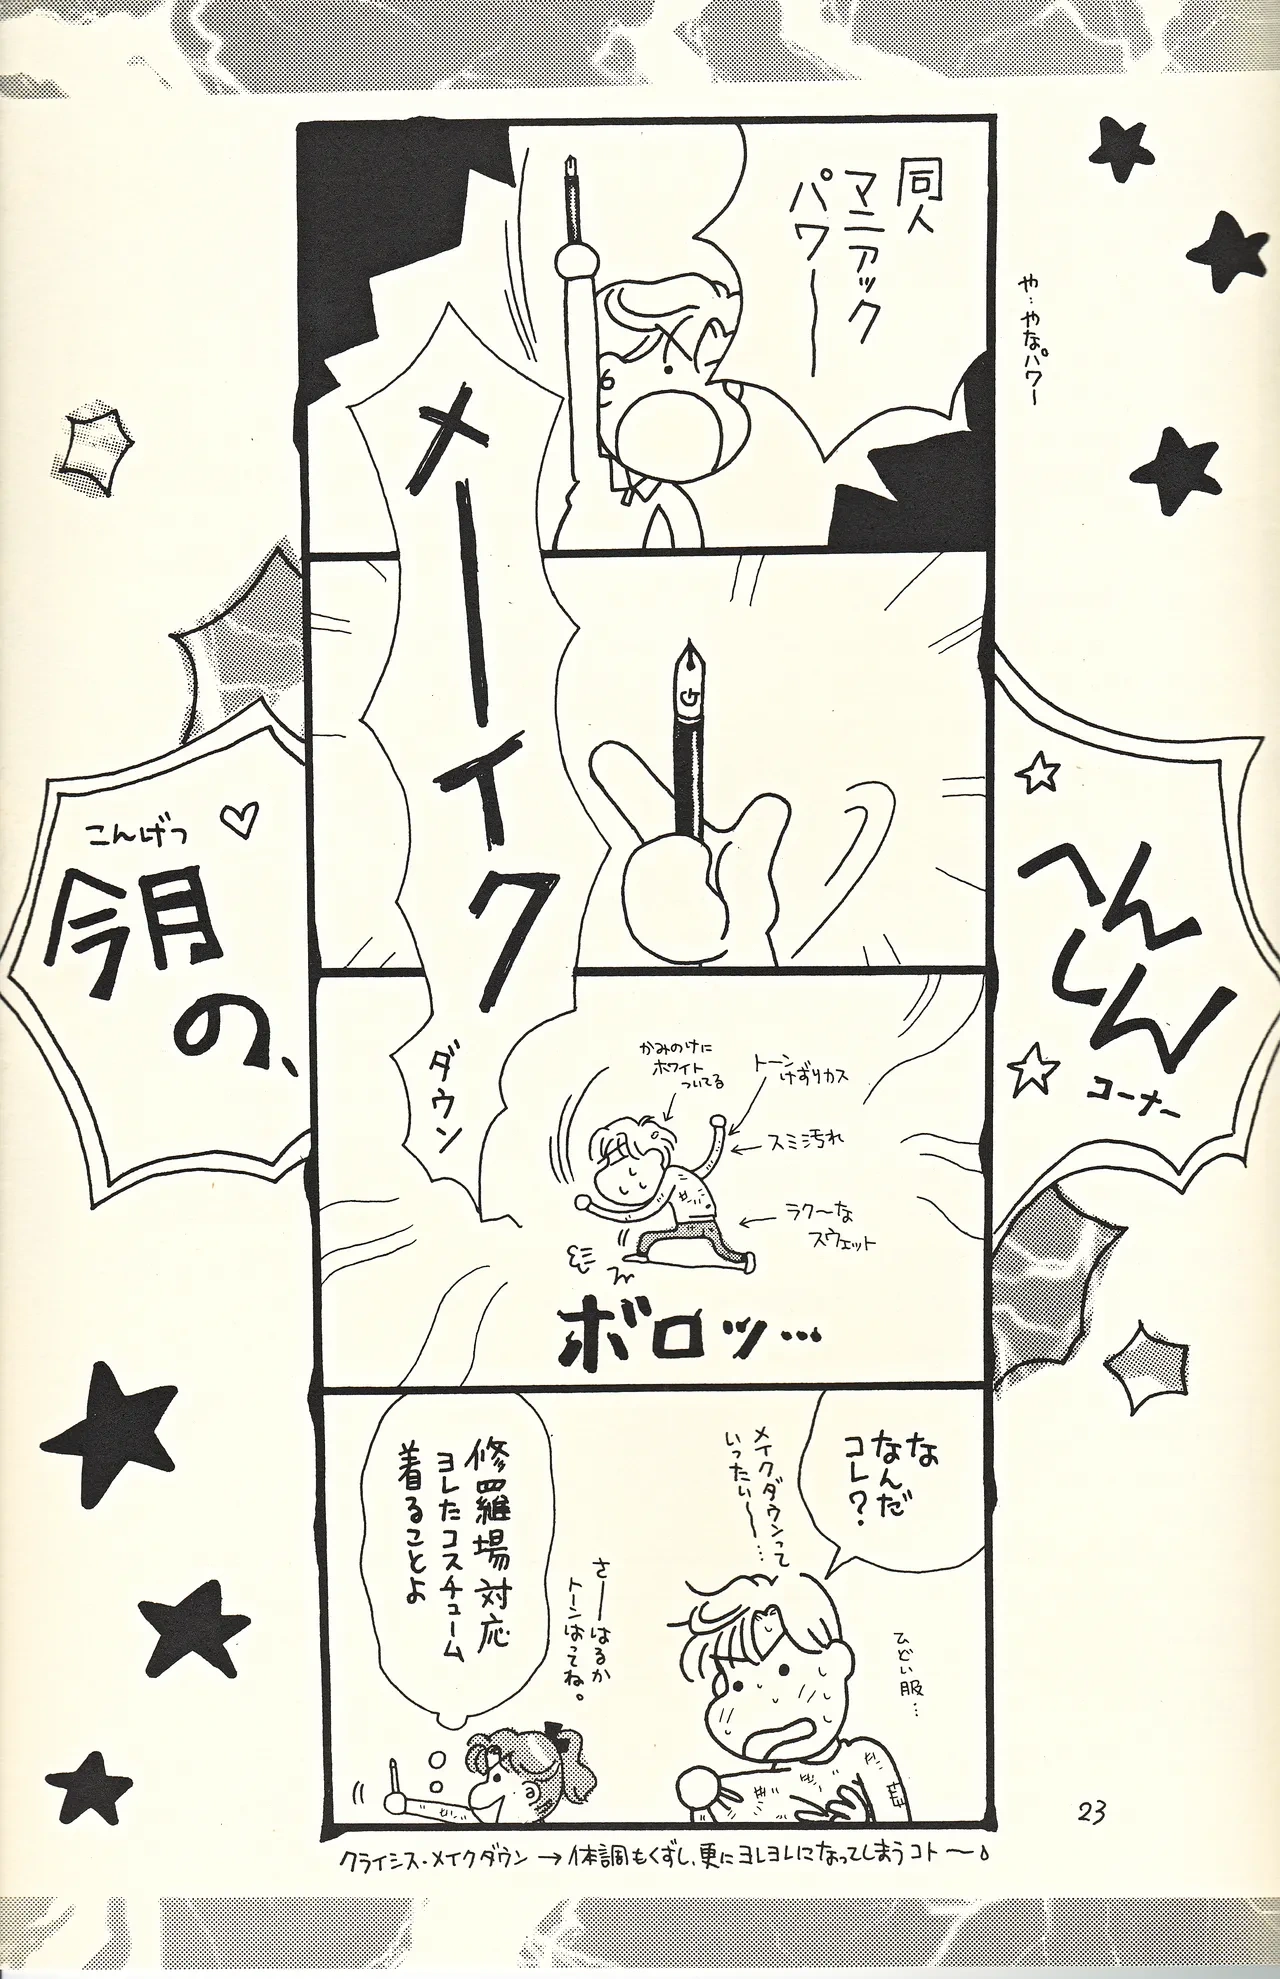 へん
しん
コーナー
今月
こんげつ
の、
や…やなパワー
同人
マニアック
パワー
メーイク
ダウン
かみのけに
ホワイト
ついてる
トーン
けずりカス
スミ汚れ
ラク〜な
スウェット
ボロッ…
な
なんだ
コレ？
メイクダウンって
いったい〜…
ひどい服…
修羅場対応
ヨレたコスチューム
着ることよ
さーはるか
トーンはってね。
クライシス・メイクダウン→体調もくずし、更にヨレヨレになってしまうコト〜
23